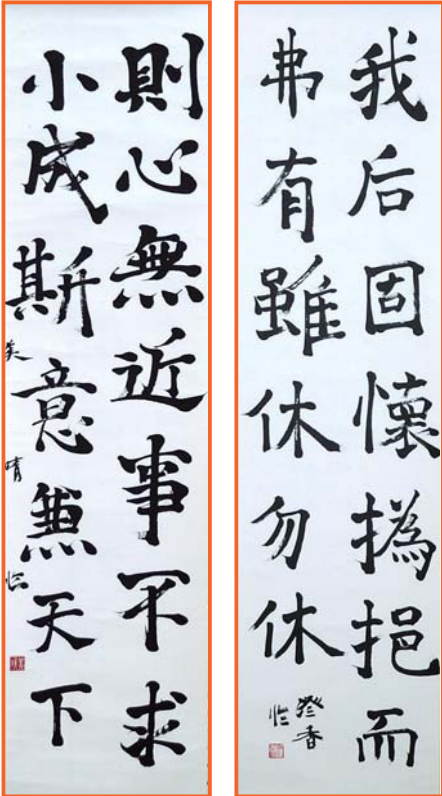 我后固懷撝挹而
弗有雖休勿休
臨
則心無近事不求
小成斯意兼天下
美晴臨